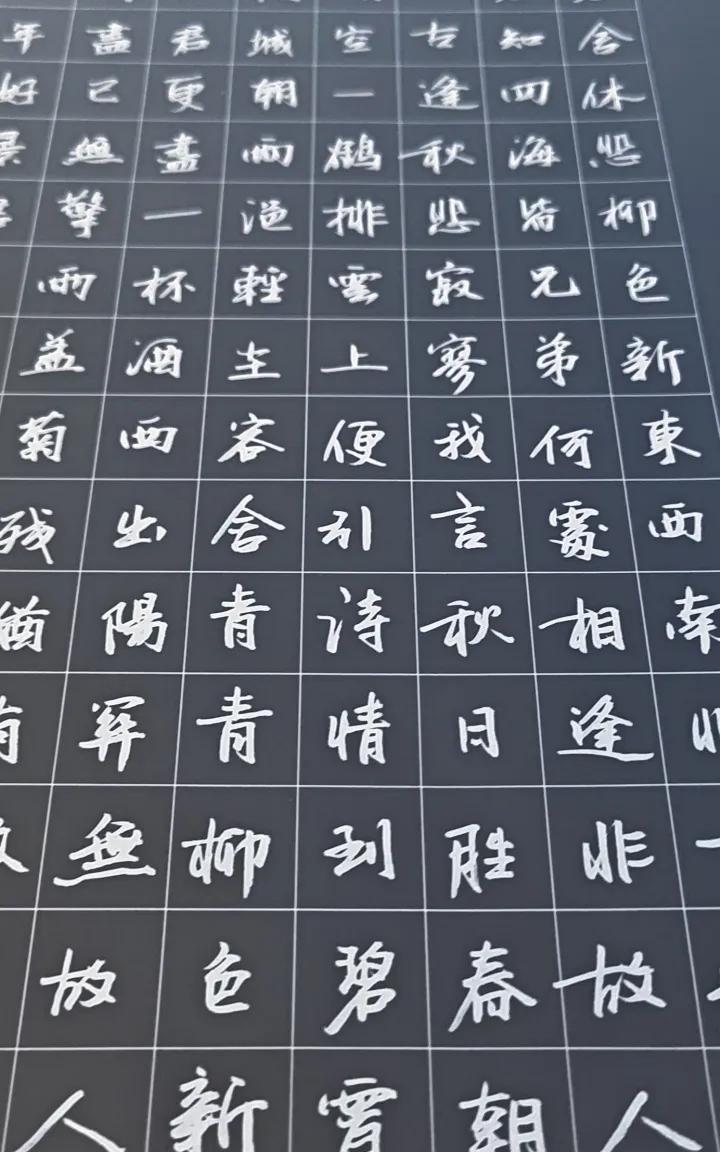 舍休悲柳色新東西南北一
知四海皆兄弟何處相逢非故人
古逢秋悲寂寥我言秋日胜春朝
空一鶴排雲上便引詩情到碧霄
城朝雨浥輕塵客舍青青柳色新
君更盡一杯酒西出陽關無故人
盡已無擎雨盖菊残猶有
年好景君